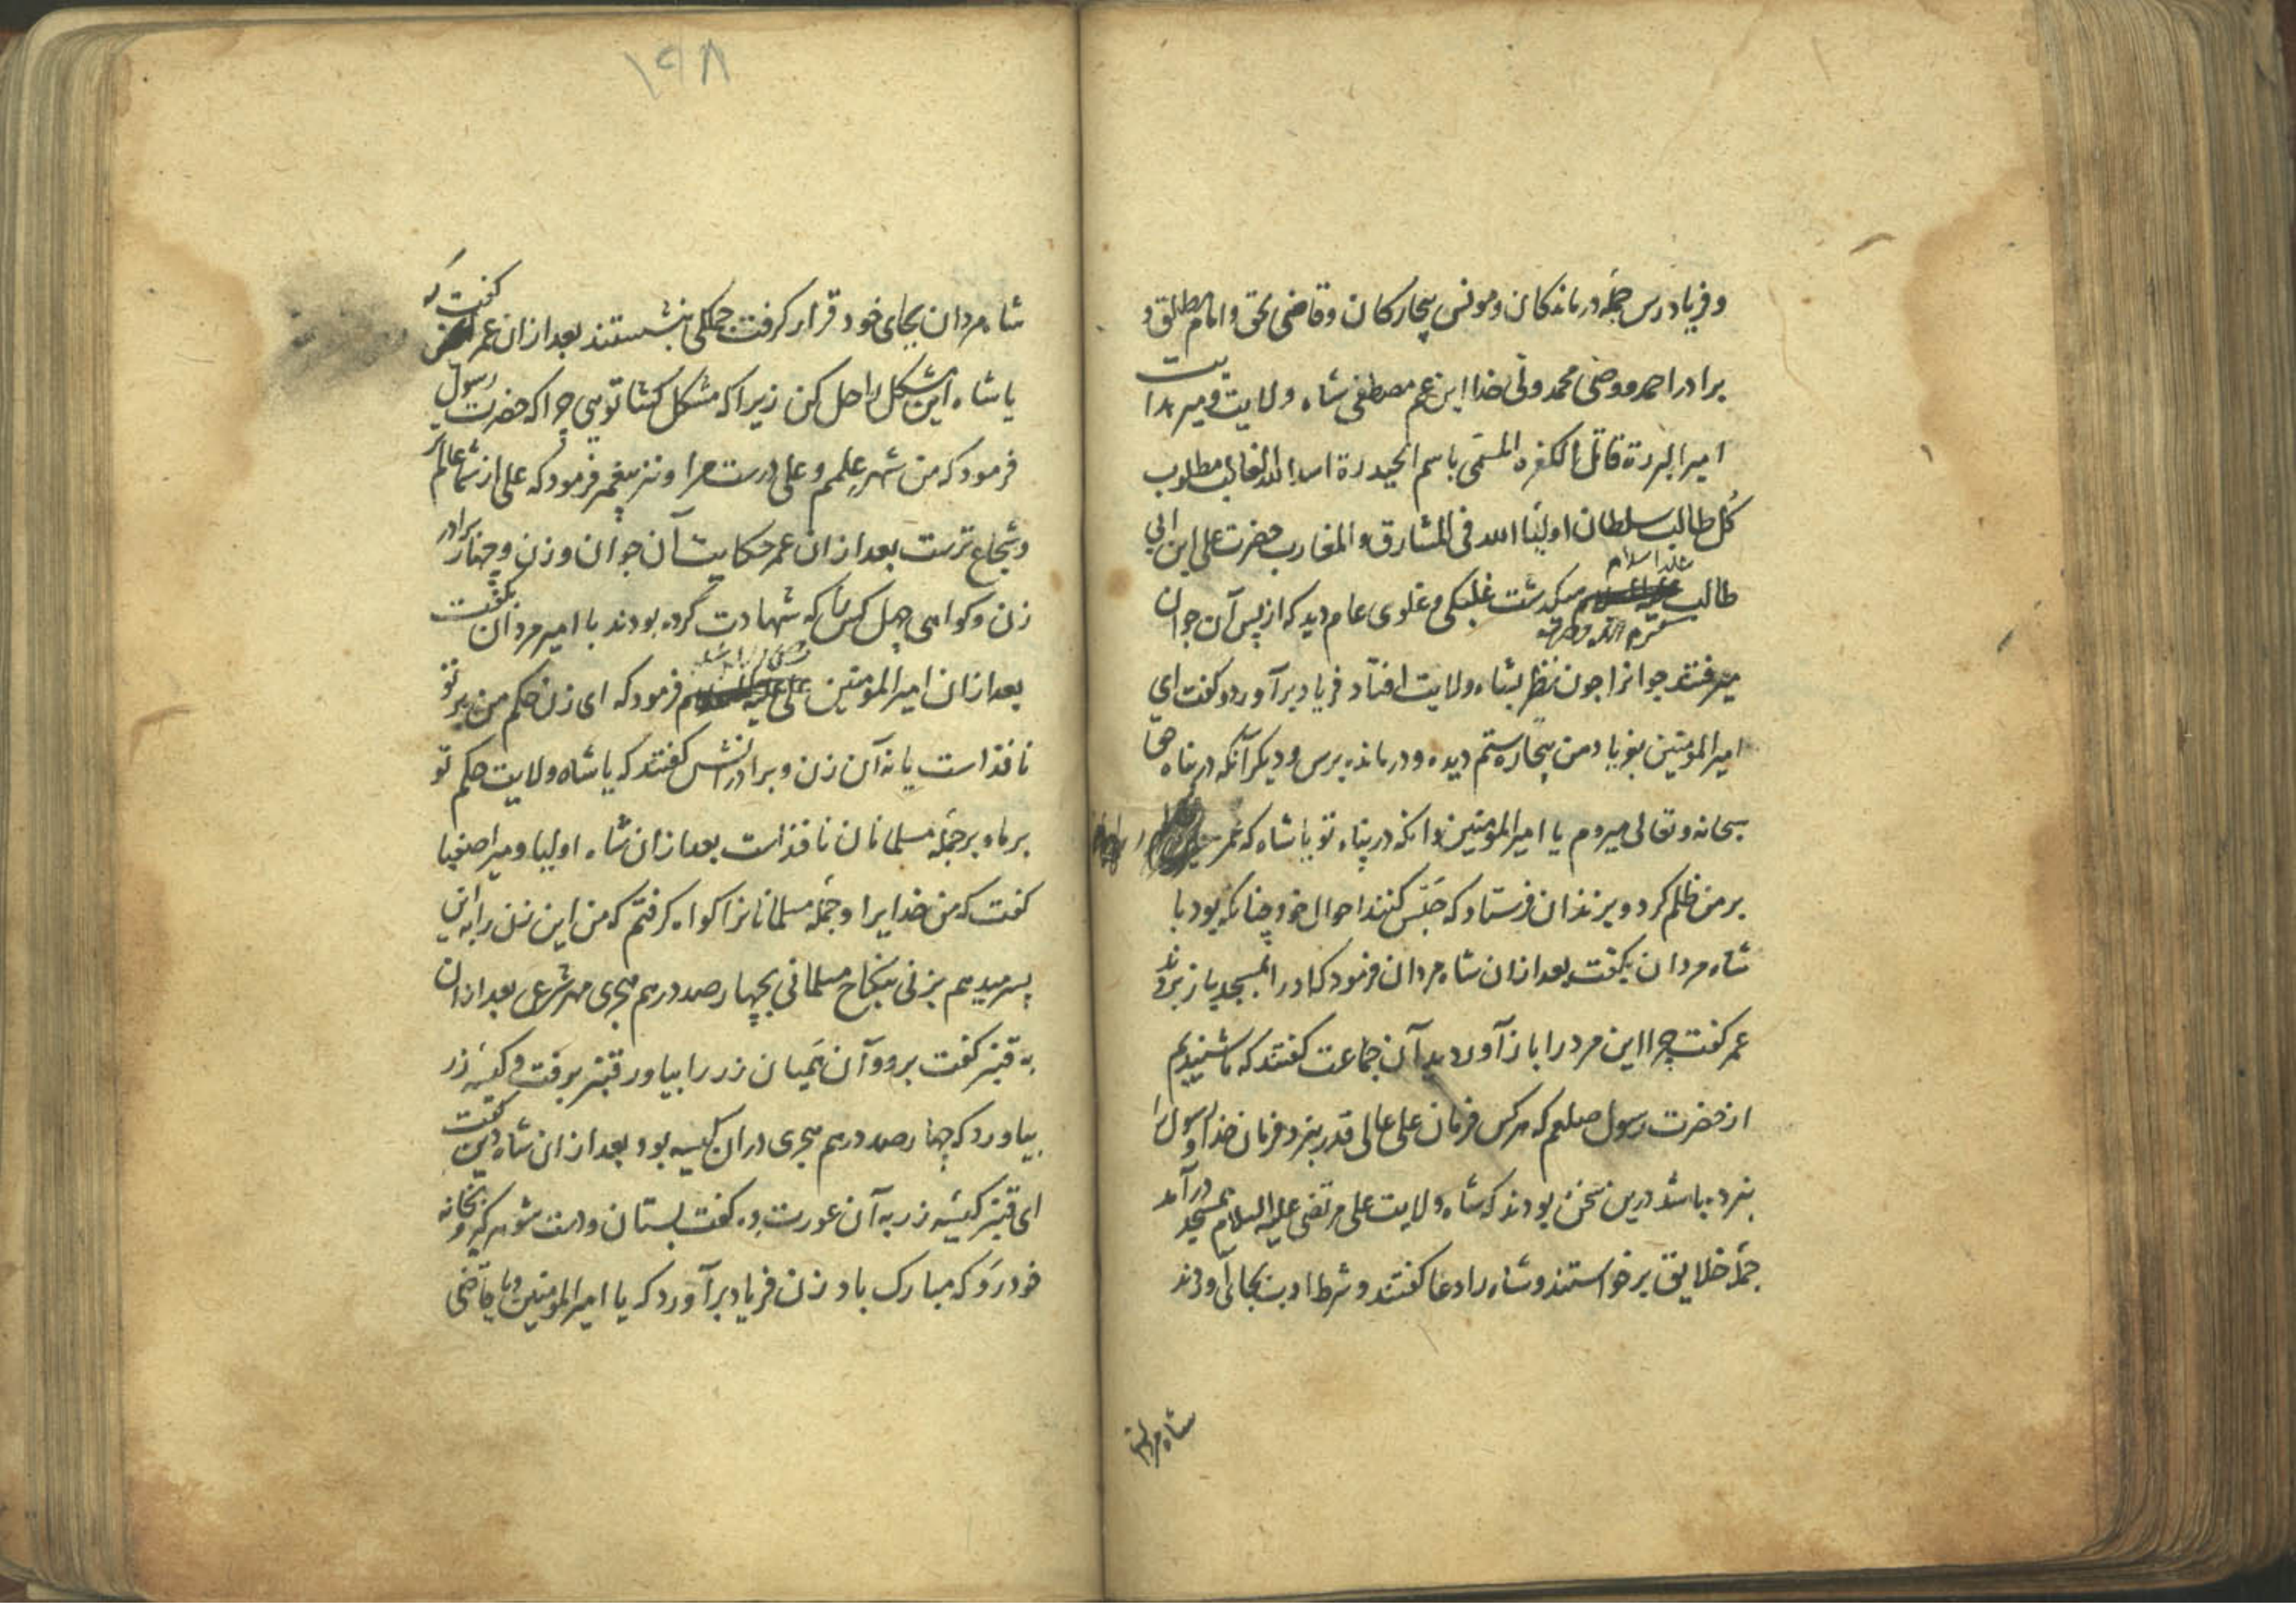 و فریادرس جمله درماندکان و مونس بیچارکان و قاضی بحق و امام مطلق و
برادر احمد و وصی محمد ولی خدا ابن عم مصطفی شاه ولایت و میر هدایت
امیر البررة قاتل الکفره المسمی باسم الحیدرة اسد الله الغالب مطلوب
کل طالب سلطان اولیاء الله فی المشارق و المغارب حضرت علی ابن ابی
علیه السلام
طالب میکذشت غلبکی و غلوی عام دید که از پس آن جوان
میرفتند جوانرا چون نظر بشاه ولایت افتاد فریاد برآورد و کفت ای
امیر المؤمنین بفریاد من بیچاره ستم دیده و درمانده برس و دیکر آنکه در پناه حق
سبحانه و تعالی میروم یا امیر المؤمنین و انکه در پناه تو یا شاه که عمر
بر من ظلم کرد و بزندان فرستاد که حبس کنند احوال خود چنانکه بود با
شاه مردان بکفت بعد ازان شاه مردان فرمود که او را بمسجد باز برند
عمر کفت چرا این مرد را باز آوردید آن جماعت کفتند که ما شنیدیم
از حضرت رسول صلعم که هرکس فرمان علی عالی قدر بنرد فرمان خدا و رسول را
بنرده باشد درین سخن بودند که شاه ولایت علی مرتضی علیه السلام بمسجد درآمد
جمله خلایق برخواستند و شاه را دعا کفتند و شرط ادب بجا آوردند
شاه مردان
۱۹۸
شاه مردان بجای خود قرار کرفت جملکی بنشستند بعد ازان عمر کفت که
یا شاه این مشکل را حل کن زیرا که مشکل کشا تویی چرا که حضرت رسول
فرمود که من شهر علمم و علی درست مرا و نیز پیغمبر فرمود که علی از شما عالم تر
و شجاع ترست بعد ازان عمر حکایت آن جوان و زن و چهار برادر
زن و کواهی چهل کس را که شهادت کرده بودند با امیر مردان بکفت
بعد ازان امیر المؤمنین علی فرمود که ای زن حکم من بر تو
نافذ است یا نه آن زن و برادرانش کفتند که یا شاه ولایت حکم تو
بر ما و بر جمله مسلمانان نافذ است بعد ازان شاه اولیا و میر اصفیا
کفت که من خدایرا و جمله مسلمانانرا کواه کرفتم که من این زن را به این
پسر میدهم بزنی بنکاح مسلمانی بچهارصد درهم هجری مهر شرعی بعد ازان
به قنبر کفت برو و آن همیان زر را بیاور قنبر برفت و کیسه زر
بیاورد که چهارصد درهم هجری دران کیسه بود بعد ازان شاه دین کفت
ای قنبر کیسه زر به آن عورت ده کفت بستان و دست شوهر کیر و بخانه
خود رو که مبارک باد زن فریاد برآورد که یا امیر المؤمنین و یا قاضی